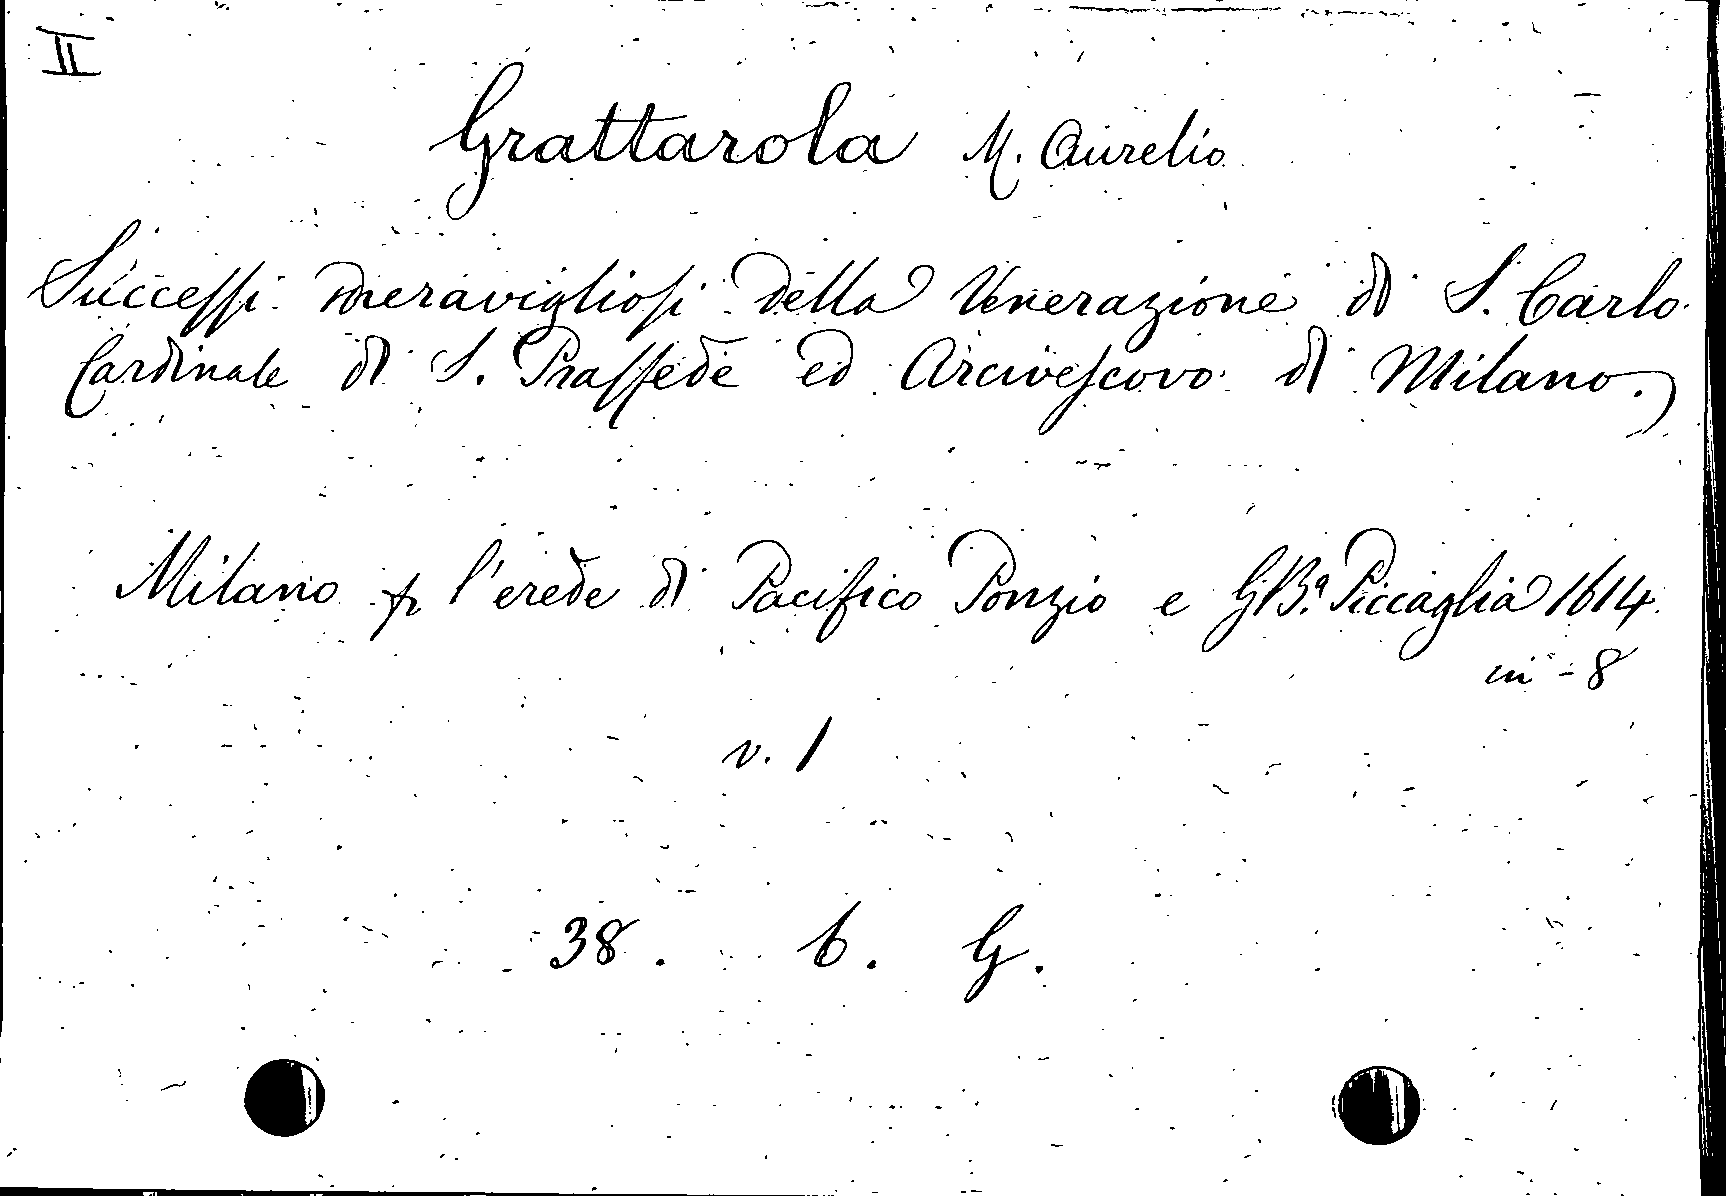 II
Grattarola M. Aurelio
Successi meravigliosi della Venerazione di S. Carlo
Cardinale di S. Prassede ed Arcivescovo di Milano.
Milano p l'erede di Pacifico Ponzio e GBª. Piccaglia 1614
in - 8
v. 1
38. b. G.